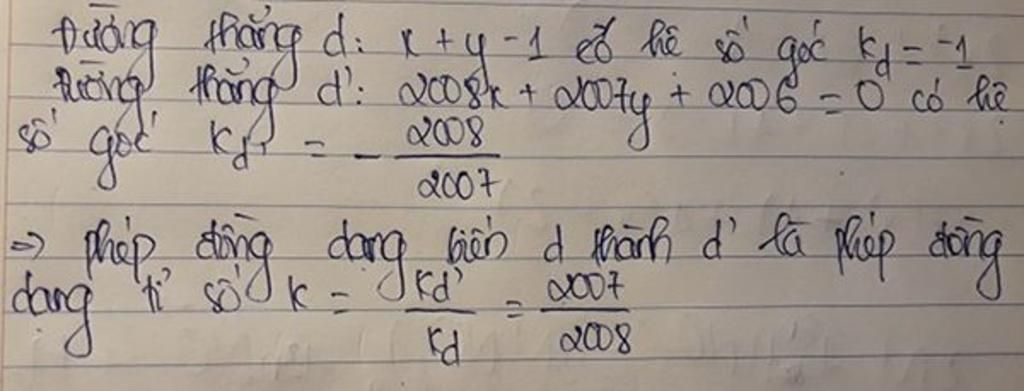 Đường thẳng d: x + y - 1 có hệ số góc k_d = -1
Đường thẳng d': 2008x + 2007y + 2006 = 0 có hệ
số góc k_d' = - 2008/2007
=> phép đồng dạng biến d thành d' là phép đồng
dạng tỉ số k = k_d'/k_d = 2007/2008